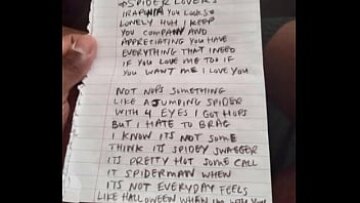 SPIDER LOVERS
YOU LOOK SO
LONELY HUH I KEEP
YOU COMPANY AND
APPRECIATING YOU HAVE
EVERYTHING THAT I NEED
IF YOU LOVE ME TOO IF
YOU WANT ME I LOVE YOU
NOT NOFS SOMETHING
LIKE A JUMPING SPIDER
WITH 4 EYES I GOT HOPS
BUT I HATE TO BRAG
I KNOW ITS NOT SOME
THINK ITS SPIDEY SWAGGER
ITS PRETTY HOT SOME CALL
IT SPIDERMAN WHEN
ITS NOT EVERYDAY FEELS
LIKE HALLOWEEN WHEN